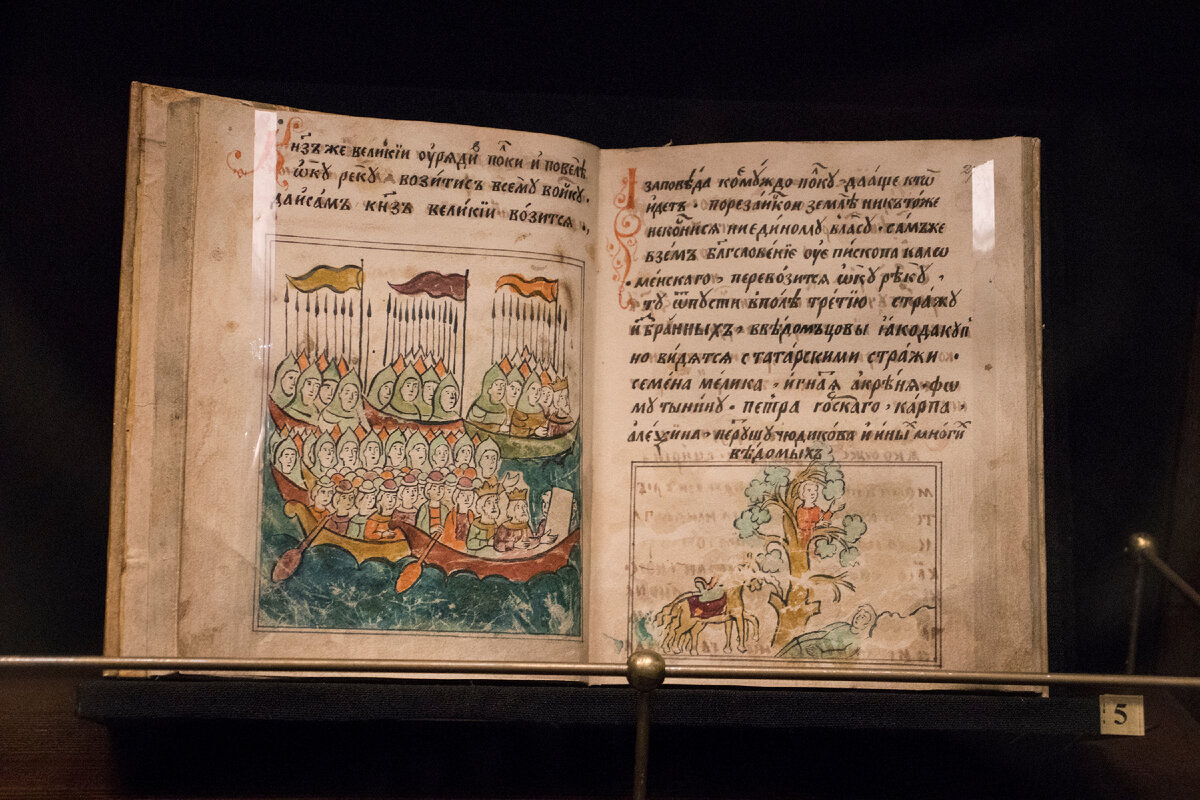 Кнѕ҃ь же великїи ѹ҆рѧди полки и҆ повелѣ
ѡ҆ку рекꙋ возитисѧ всемꙋ вои҆скꙋ ·
да и҆ самъ кн҃зь великїи во́зитсѧ ·,
И заповѣ́да комꙋждо полкꙋ · да а҆ще кто̀
и҆де́тъ · по реза́нскои земле́ никтоже
не косни́сѧ ни е҆ди́номꙋ вла́сꙋ · са́мъ же
взе́мъ благослове́нїе ѹ҆ е҆пи́скопа кало
ме́нскаго · перевозитсѧ ѡ҆кꙋ рѣ́кꙋ ·
тꙋ ѿпꙋсти в поле третїю стра́жꙋ
и҆збра́нныхъ · в вѣ́домъцовы ꙗ҆ко да кꙋп
но ви́дѧтсѧ с тата́рскими стра́жи ·
семе́на ме́лика · и҆гна́тїѧ а҆ кре́нѧ · фо
мꙋ тыни́нꙋ · петра̀ го́рскаго · ка́рпа ·
але́ѯина · петрꙋшꙋ чю́дикова и҆ и҆ны́хъ мно́гихъ
вѣ́домыхъ ·
5